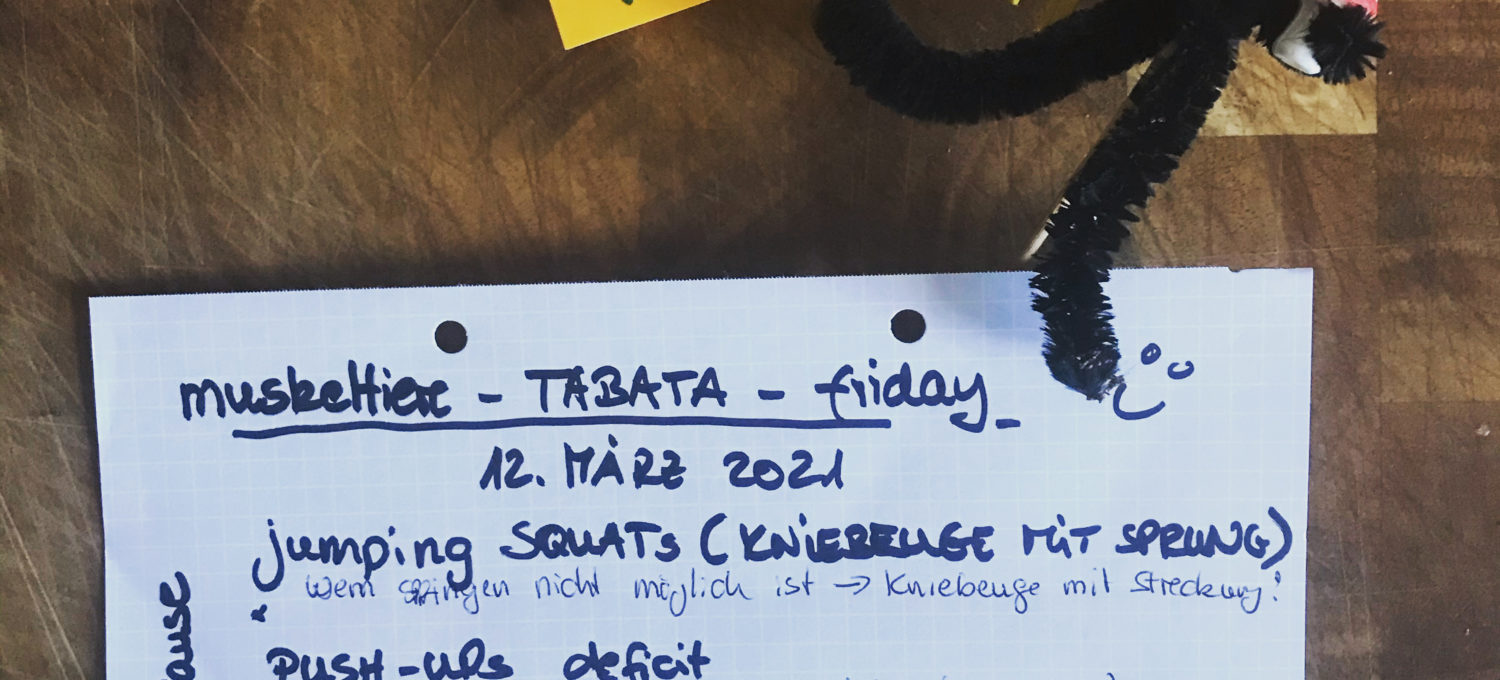 muskeltier - TABATA - friday
12. MÄRZ 2021
jumping SQUATs (KNIEBEUGE MiT SPRUNG)
wem springen nicht möglich ist → Kniebeuge mit Streckung!
PUSH-UPs deficit